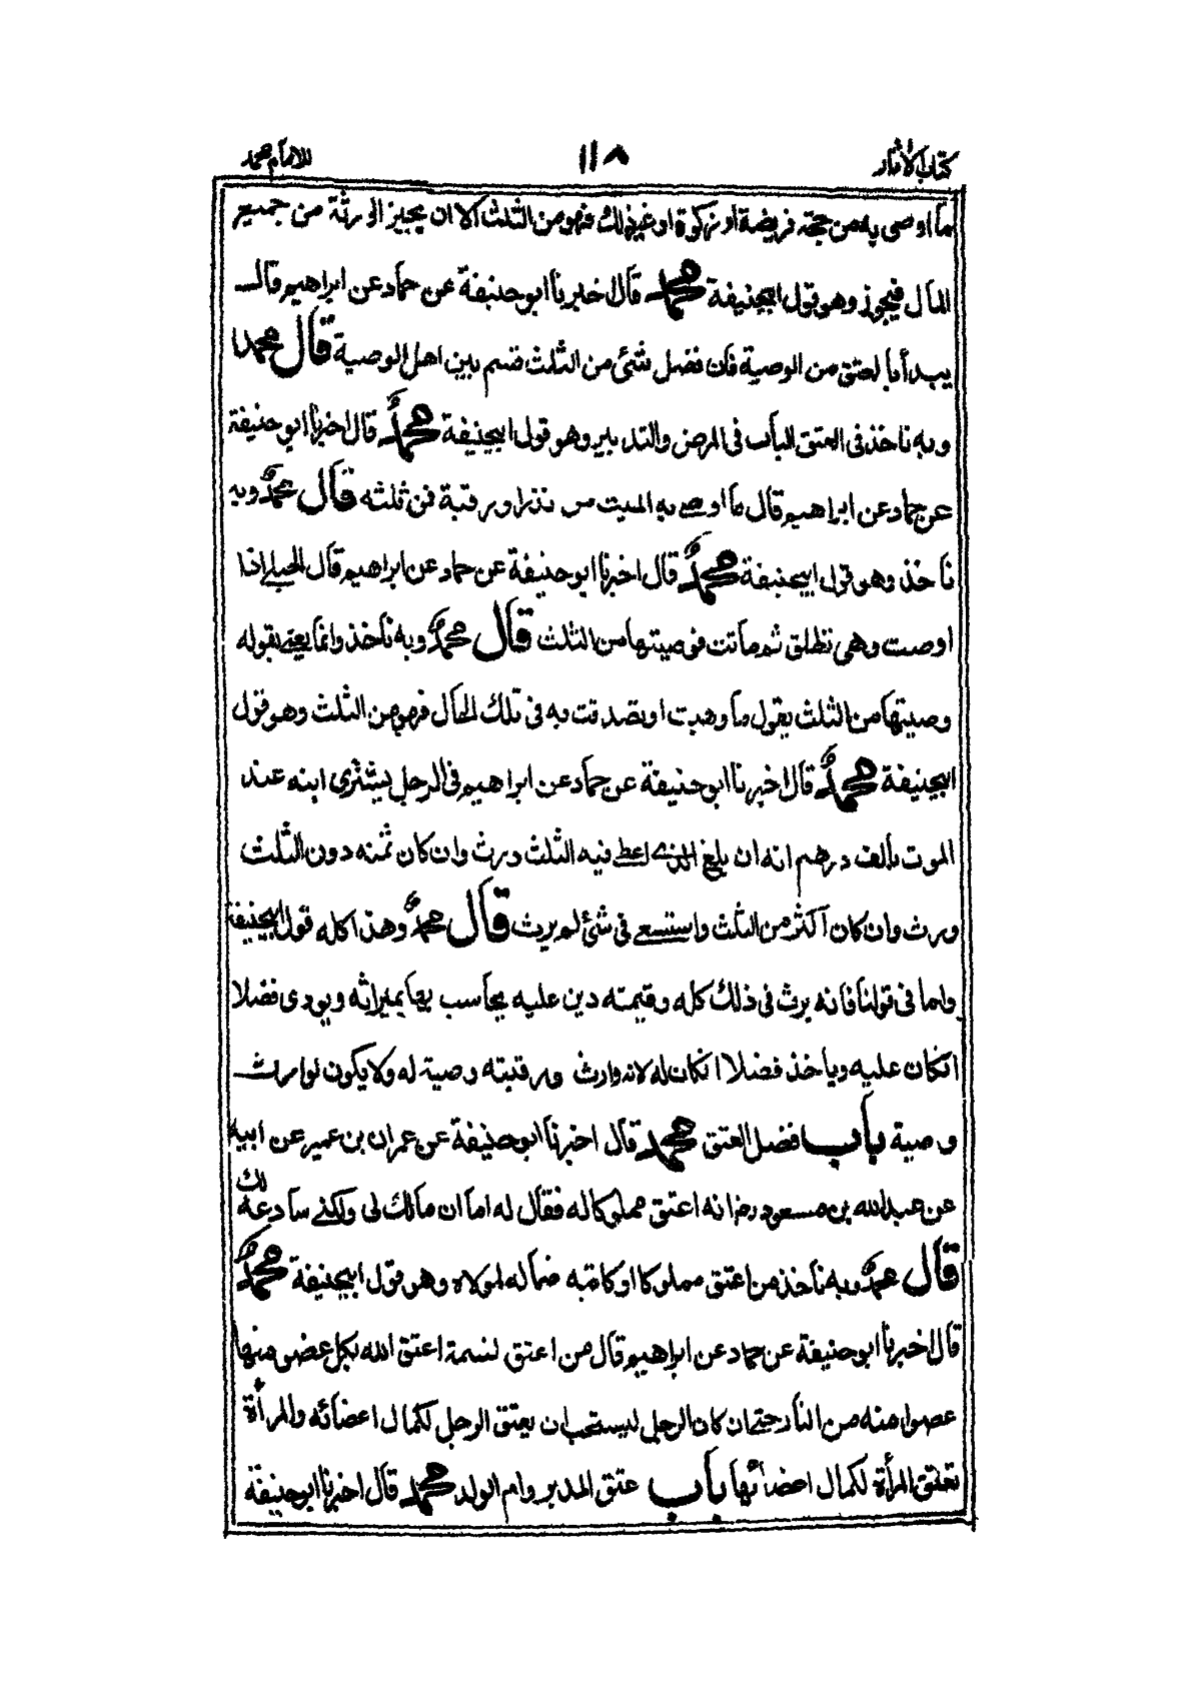 كتاب الآثار ١١٨ للامام محمد
ما اوصى به من حجة فريضة او زكوة او غير ذلك فهو من الثلث الا ان يجيز الورثة من جميع
المال فيجوز وهو قول ابيحنيفة محمد قال اخبرنا ابو حنيفة عن حماد عن ابراهيم قال
يبدأ بالعتق من الوصية فان فضل شئ من الثلث قسم بين اهل الوصية قال محمد
وبه ناخذ فى العتق البات فى المرض والتدبير وهو قول ابيحنيفة محمد قال اخبرنا ابو حنيفة
عن حماد عن ابراهيم قال ما اوصى به الميت من نذر او رقبة فمن ثلثه قال محمد وبه
ناخذ وهو قول ابيحنيفة محمد قال اخبرنا ابو حنيفة عن حماد عن ابراهيم قال الحبلى اذا
اوصت وهى تطلق ثم ماتت فوصيتها من الثلث قال محمد وبه ناخذ وانما يعنى بقوله
وصيتها من الثلث يقول ما وهبت او تصدقت به فى تلك الحال فهو من الثلث وهو قول
ابيحنيفة محمد قال اخبرنا ابو حنيفة عن حماد عن ابراهيم فى الرجل يشترى ابنه عند
الموت بالف درهم انه ان بلغ الذى اعطى فيه الثلث ورث وان كان ثمنه دون الثلث
ورث وان كان اكثر من الثلث واستسعى فى شئ لم يرث قال محمد وهذا كله قول ابيحنيفة
واما فى قولنا فانه يرث فى ذلك كله وقيمته دين عليه يحاسب بها بميراثه ويودى فضلا
انكان عليه وياخذ فضلا انكان له لانه وارث ورقبته وصية له ولا يكون لوارث
وصية باب فضل العتق محمد قال اخبرنا ابو حنيفة عن عمران بن عمير عن ابيه
عن عبد الله بن مسعود رض انه اعتق مملوكا له فقال له اما ان مالك لى ولكنى سادعه لك
قال محمد وبه ناخذ من اعتق مملوكا او كاتبه فماله لمولاه وهو قول ابيحنيفة محمد
قال اخبرنا ابو حنيفة عن حماد عن ابراهيم قال من اعتق نسمة اعتق الله بكل عضو منها
عضوا منه من النار حتى ان كان الرجل ليستحب ان يعتق الرجل لكمال اعضائه والمرأة
تعتق المرأة لكمال اعضائها باب عتق المدبر وام الولد محمد قال اخبرنا ابو حنيفة